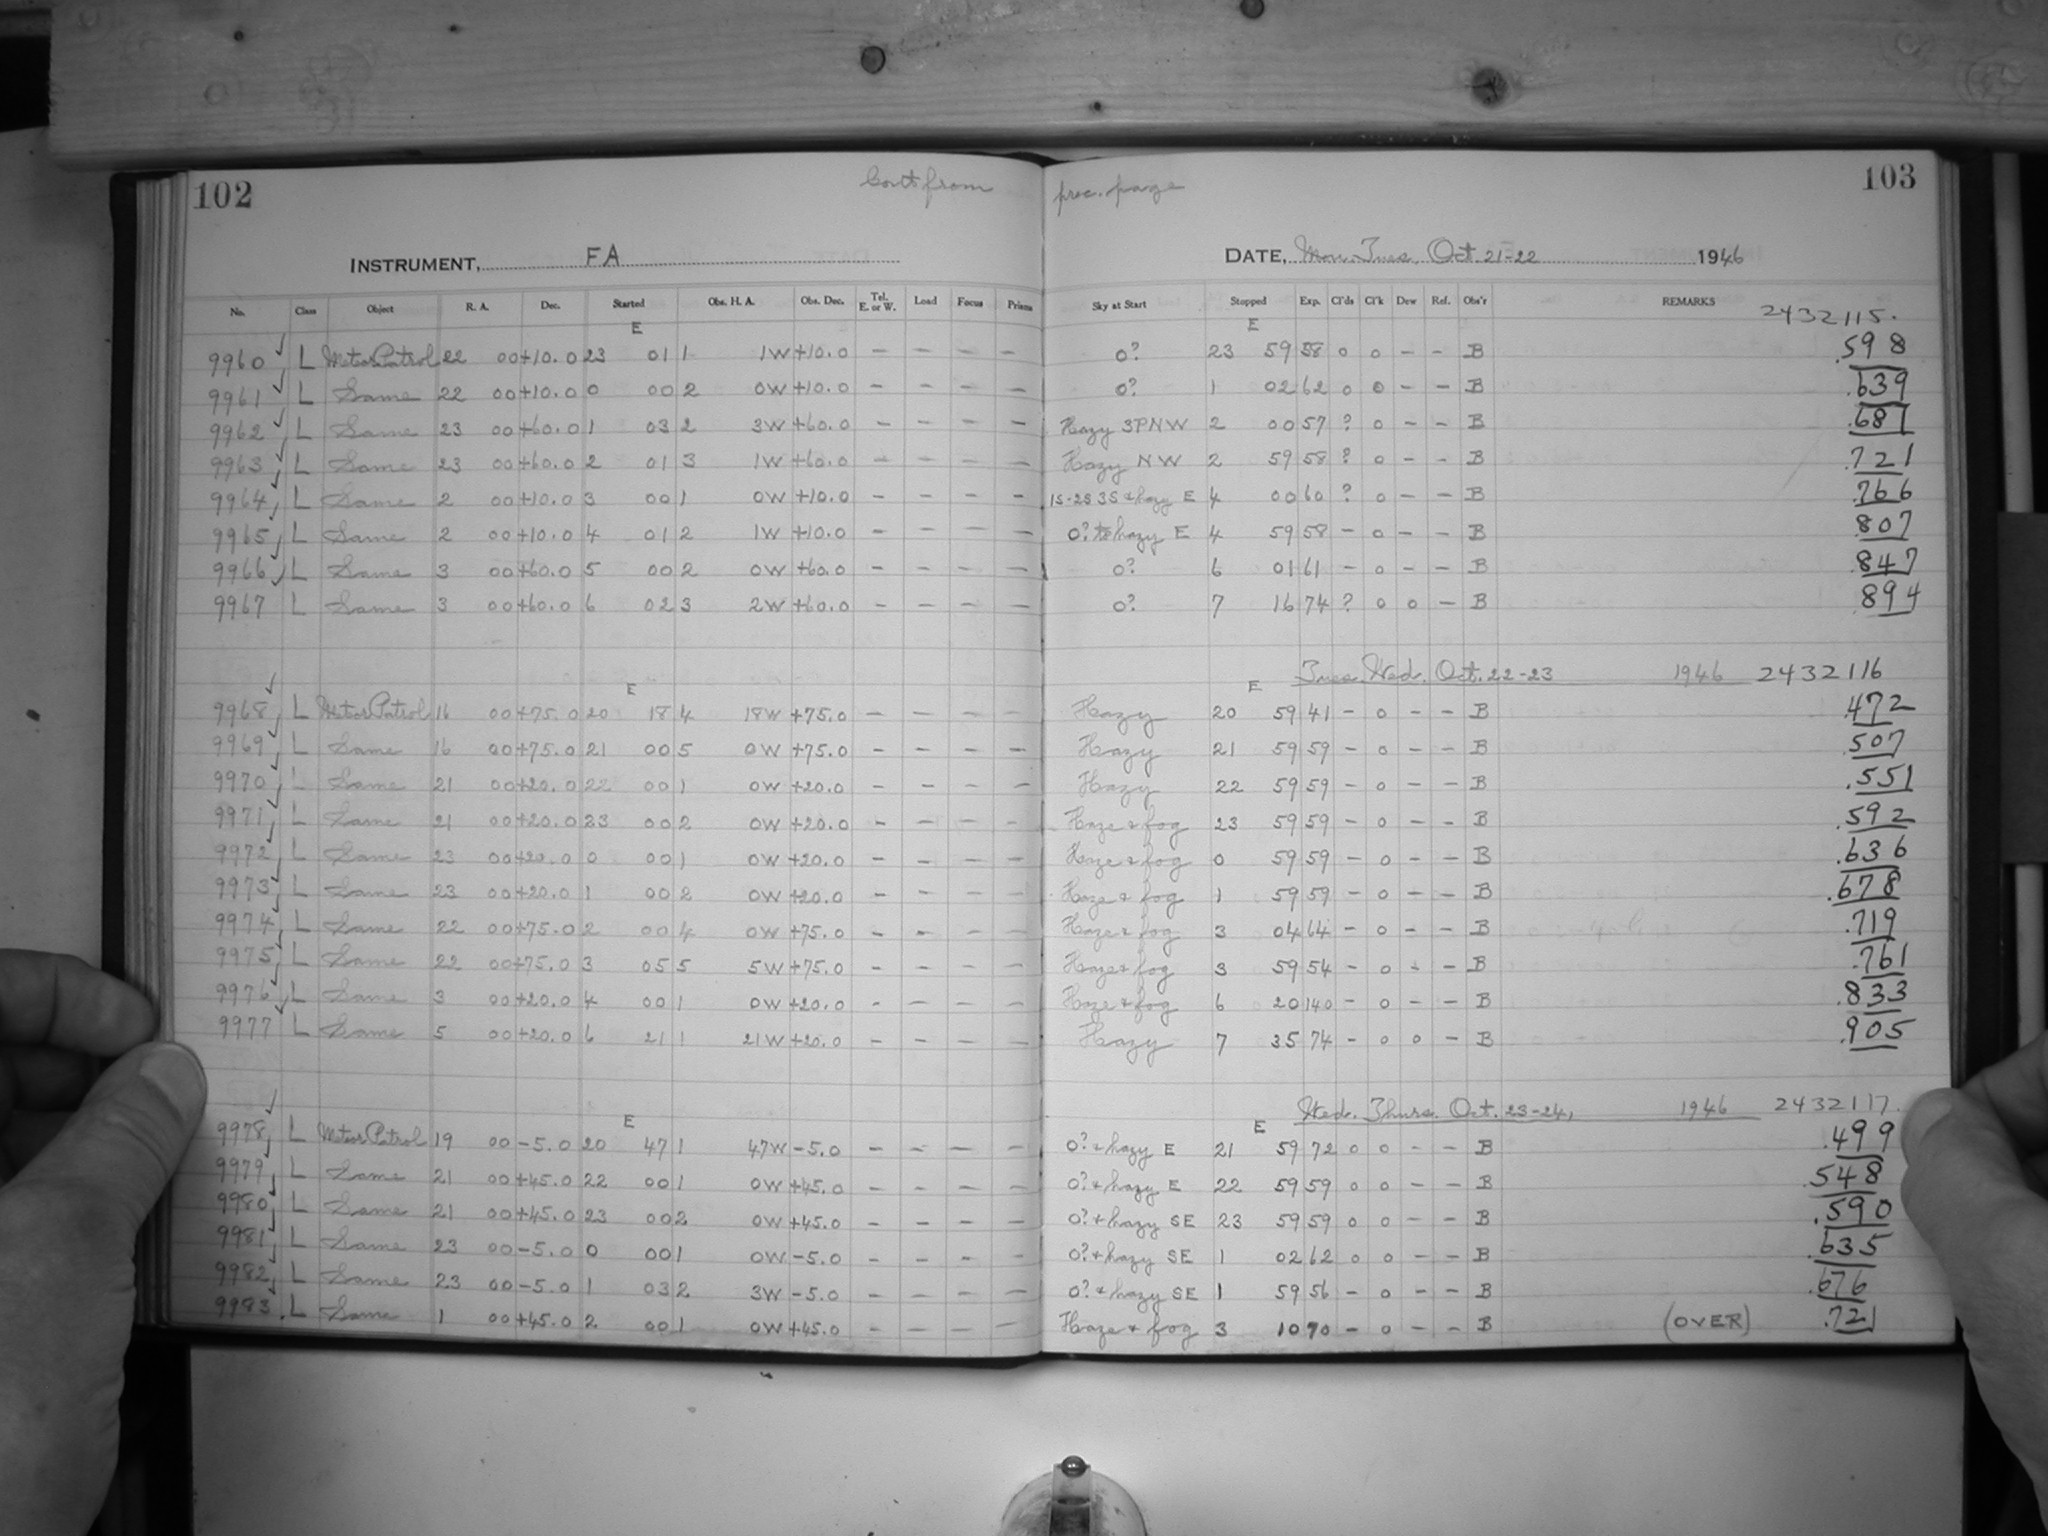 102 Cont from prec. page 103
INSTRUMENT, FA DATE, Mon. Tues. Oct. 21-22 1946
No. Class Object R. A. Dec. Started Obs. H. A. Obs. Dec. Tel. E. or W. Load Focus Prisms Sky at Start Stopped Exp. Cl'ds Cl'k Dew Ref. Obs'r REMARKS
E E 2432115.
9960 L Meteor Patrol 22 00 +10.0 23 01 1 1W +10.0 - - - - 0? 23 59 58 0 0 - - B .598
9961 L Same 22 00 +10.0 0 00 2 0W +10.0 - - - - 0? 1 02 62 0 0 - - B .639
9962 L Same 23 00 +60.0 1 03 2 3W +60.0 - - - - Hazy 3PNW 2 00 57 ? 0 - - B .681
9963 L Same 23 00 +60.0 2 01 3 1W +60.0 - - - - Hazy NW 2 59 58 ? 0 - - B .721
9964 L Same 2 00 +10.0 3 00 1 0W +10.0 - - - - 1S-2S 3S & hazy E 4 00 60 ? 0 - - B .766
9965 L Same 2 00 +10.0 4 01 2 1W +10.0 - - - 0? hazy E 4 59 58 - 0 - - B .807
9966 L Same 3 00 +60.0 5 00 2 0W +60.0 - - - - 0? 6 01 61 - 0 - - B .847
9967 L Same 3 00 +60.0 6 02 3 2W +60.0 - - - - 0? 7 16 74 ? 0 0 - B .894
E E Tues. Wed. Oct. 22-23 1946 2432116
9968 L Meteor Patrol 16 00 +75.0 20 18 4 18W +75.0 - - - - Hazy 20 59 41 - 0 - - B .472
9969 L Same 16 00 +75.0 21 00 5 0W +75.0 - - - - Hazy 21 59 59 - 0 - - B .507
9970 L Same 21 00 +20.0 22 00 1 0W +20.0 - - - - Hazy 22 59 59 - 0 - - B .551
9971 L Same 21 00 +20.0 23 00 2 0W +20.0 - - - - Haze & fog 23 59 59 - 0 - - B .592
9972 L Same 23 00 +20.0 0 00 1 0W +20.0 - - - - Haze & fog 0 59 59 - 0 - - B .636
9973 L Same 23 00 +20.0 1 00 2 0W +20.0 - - - - Haze & fog 1 59 59 - 0 - - B .678
9974 L Same 22 00 +75.0 2 00 4 0W +75.0 - - - - Haze & fog 3 04 64 - 0 - - B .719
9975 L Same 22 00 +75.0 3 05 5 5W +75.0 - - - - Haze & fog 3 59 54 - 0 - - B .761
9976 L Same 3 00 +20.0 4 00 1 0W +20.0 - - - - Haze & fog 6 20 140 - 0 - - B .833
9977 L Same 5 00 +20.0 6 21 1 21W +20.0 - - - - Hazy 7 35 74 - 0 0 - B .905
E E Wed. Thurs. Oct. 23-24, 1946 2432117.
9978 L Meteor Patrol 19 00 -5.0 20 47 1 47W -5.0 - - - - 0? & hazy E 21 59 72 0 0 - - B .499
9979 L Same 21 00 +45.0 22 00 1 0W +45.0 - - - - 0? & hazy E 22 59 59 0 0 - - B .548
9980 L Same 21 00 +45.0 23 00 2 0W +45.0 - - - - 0? & hazy SE 23 59 59 0 0 - - B .590
9981 L Same 23 00 -5.0 0 00 1 0W -5.0 - - - - 0? & hazy SE 1 02 62 0 0 - - B .635
9982 L Same 23 00 -5.0 1 03 2 3W -5.0 - - - - 0? & hazy SE 1 59 56 - 0 - - B .676
9983 L Same 1 00 +45.0 2 00 1 0W +45.0 - - - - Haze & fog 3 10 70 - 0 - - B (OVER) .721